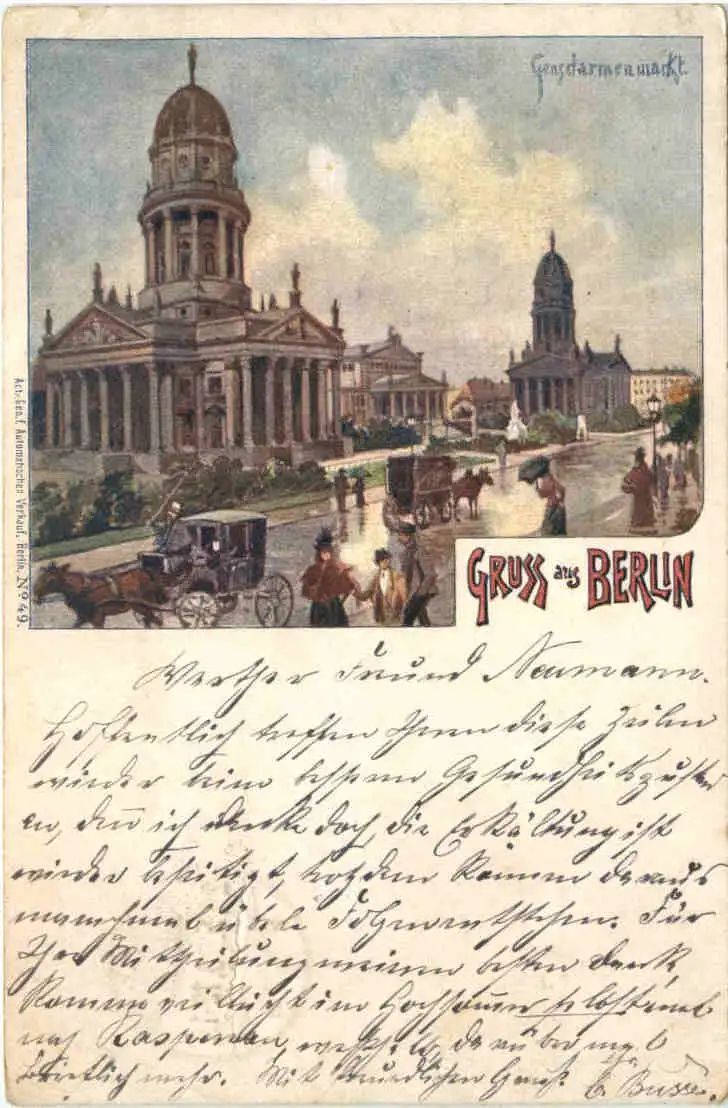 Gensdarmenmarkt.
Act.-Ges. f. Automatischen Verkauf, Berlin. No 49.
GRUSS aus BERLIN
Werther Freund Neumann.
Hoffentlich treffen Ihnen diese Zeilen
wieder beim besseren Gesundheitszustand
an, den ich denke doch, die Erkältung ist
wieder beseitigt, trotzdem können daraus
manchmal üble Folgen entstehen. Für
Ihre Mittheilung meinen besten Dank,
komme vielleicht im Hochsommer selbst mal
nach darüber mal
brieflich mehr. Mit freundlichen Gruß. Busse.